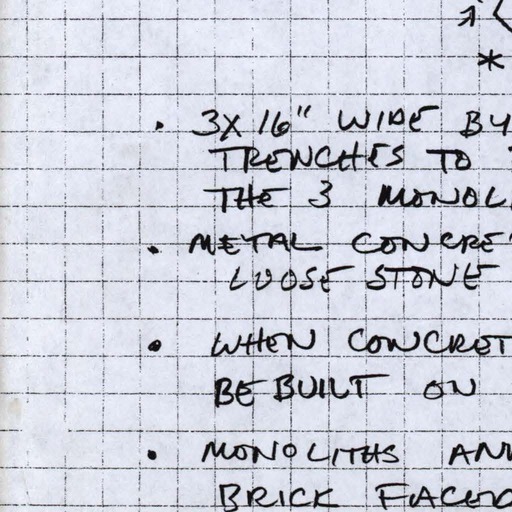 *
• 3X16" WIDE BY
TRENCHES TO
THE 3 MONOL
• METAL CONCRE
LOOSE STONE
• WHEN CONCRET
BE BUILT ON
• MONOLITHS AN
BRICK FACED